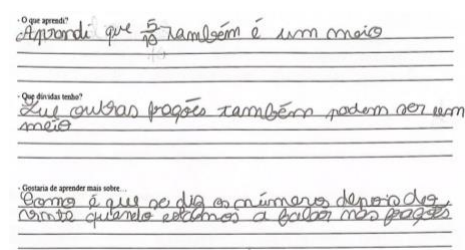 · O que aprendi?
Aprendi que 5/10 também é um meio
· Que dúvidas tenho?
Que outras frações também podem ser um
meio
· Gostaria de aprender mais sobre...
Como é que se diz os números depois do
vinte quando estamos a falar nas frações